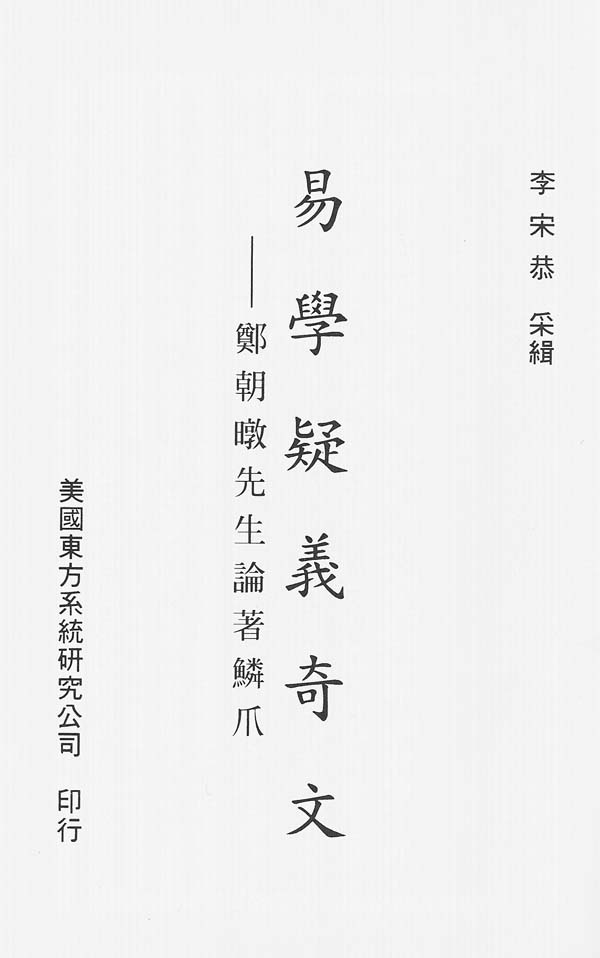 李宋恭 采緝
易學疑義奇文
——鄭朝暾先生論著鱗爪
美國東方系統研究公司 印行